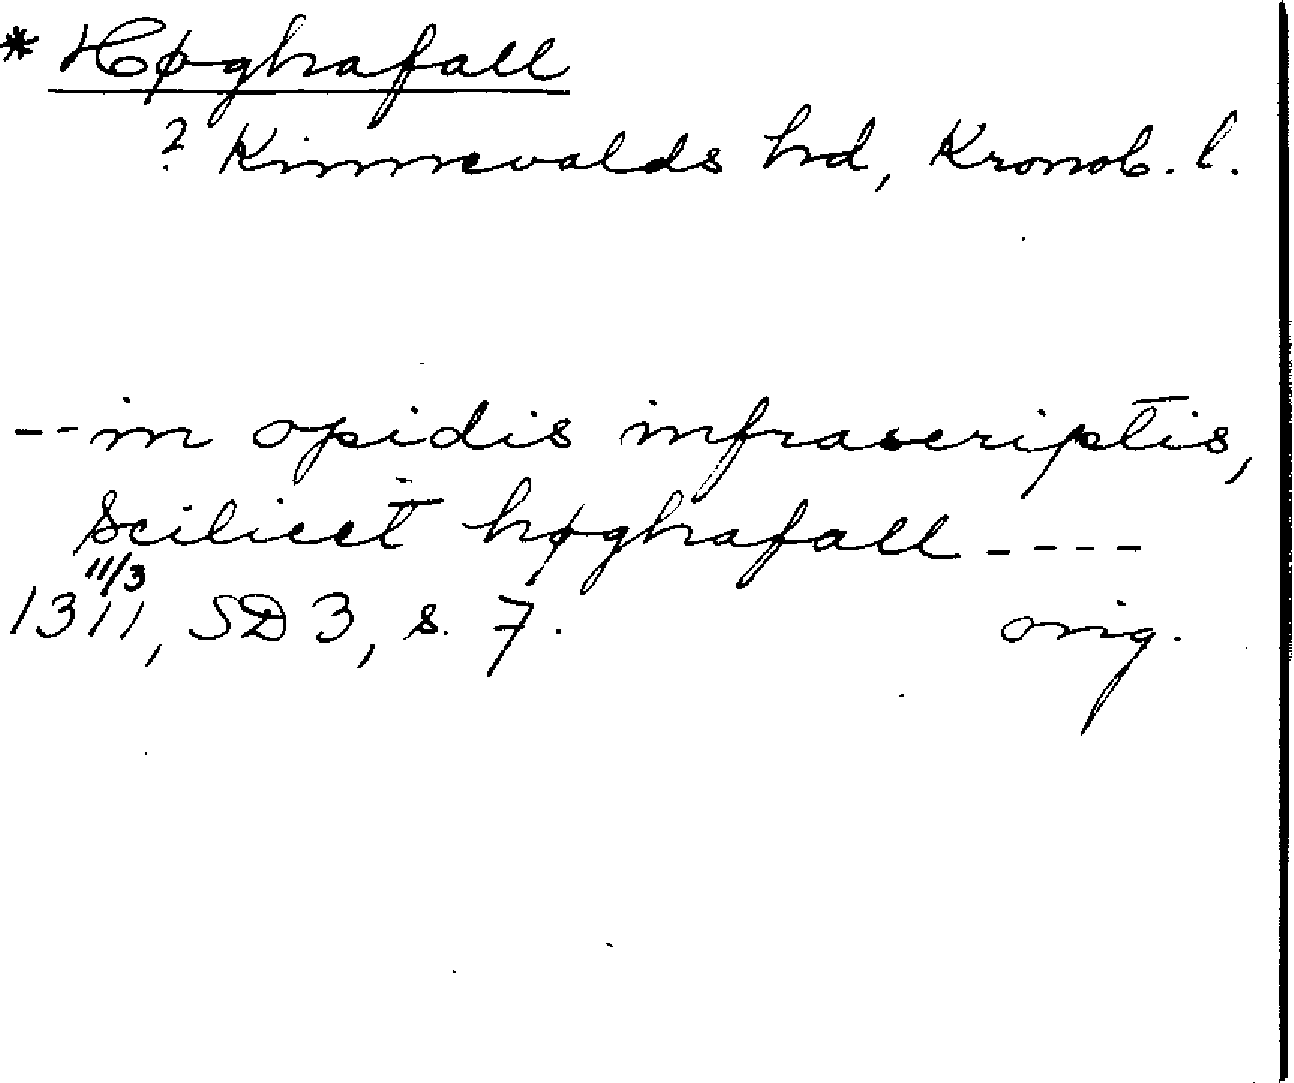 * Høghafall
? Kinnevalds hd, Kronob. l.
-- in opidis infrascriptis,
scilicet høghafall ----
11/3
1311, SD 3, s. 7. orig.